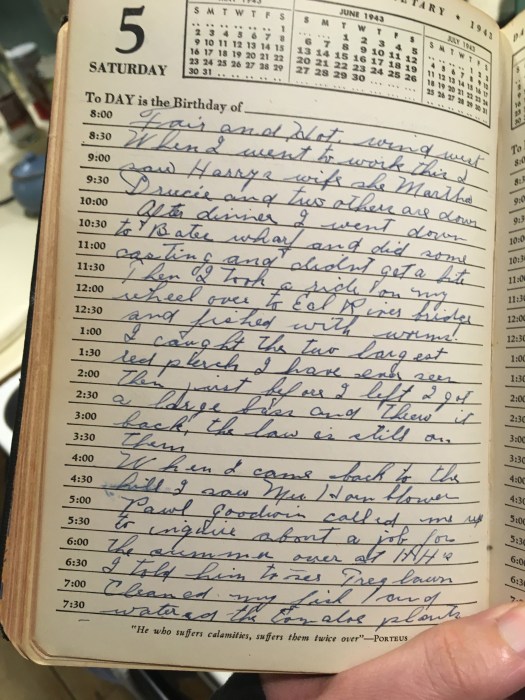 5
SATURDAY
MAY 1943
S M T W T F S
. . . . . . 1
2 3 4 5 6 7 8
9 10 11 12 13 14 15
16 17 18 19 20 21 22
23 24 25 26 27 28 29
30 31
JUNE 1943
S M T W T F S
. . 1 2 3 4 5
6 7 8 9 10 11 12
13 14 15 16 17 18 19
20 21 22 23 24 25 26
27 28 29 30
JULY 1943
S M T W T F S
. . . . 1 2 3
4 5 6 7 8 9 10
11 12 13 14 15 16 17
18 19 20 21 22 23 24
25 26 27 28 29 30 31
ETARY • 1943
To DAY is the Birthday of
8:00 Fair and Hot. wind west
8:30 When I went to work this I
9:00 saw Harrys wife she Martha
9:30 and two others are down
10:00 After dinner I went down
10:30 to Bates wharf and did some
11:00 casting and didnt get a bite
11:30 Then I took a ride on my
12:00 wheel over to Eel River bridge
12:30 and fished with worms.
1:00 I caught the two largest
1:30 red perch I have ever seen
2:00 Then just before I left I got
2:30 a large bass and threw it
3:00 back, the law is still on
3:30 them
4:00 When I came back to the
4:30 hill I saw Mrs Hornblower
5:00 Paul Goodwin called me up
5:30 to inquire about a job for
6:00 the summer over at HH's
6:30 I told him to see Treglawn
7:00 Cleaned my fish and
7:30 watered the plants
"He who suffers calamities, suffers them twice over"—PORTEUS